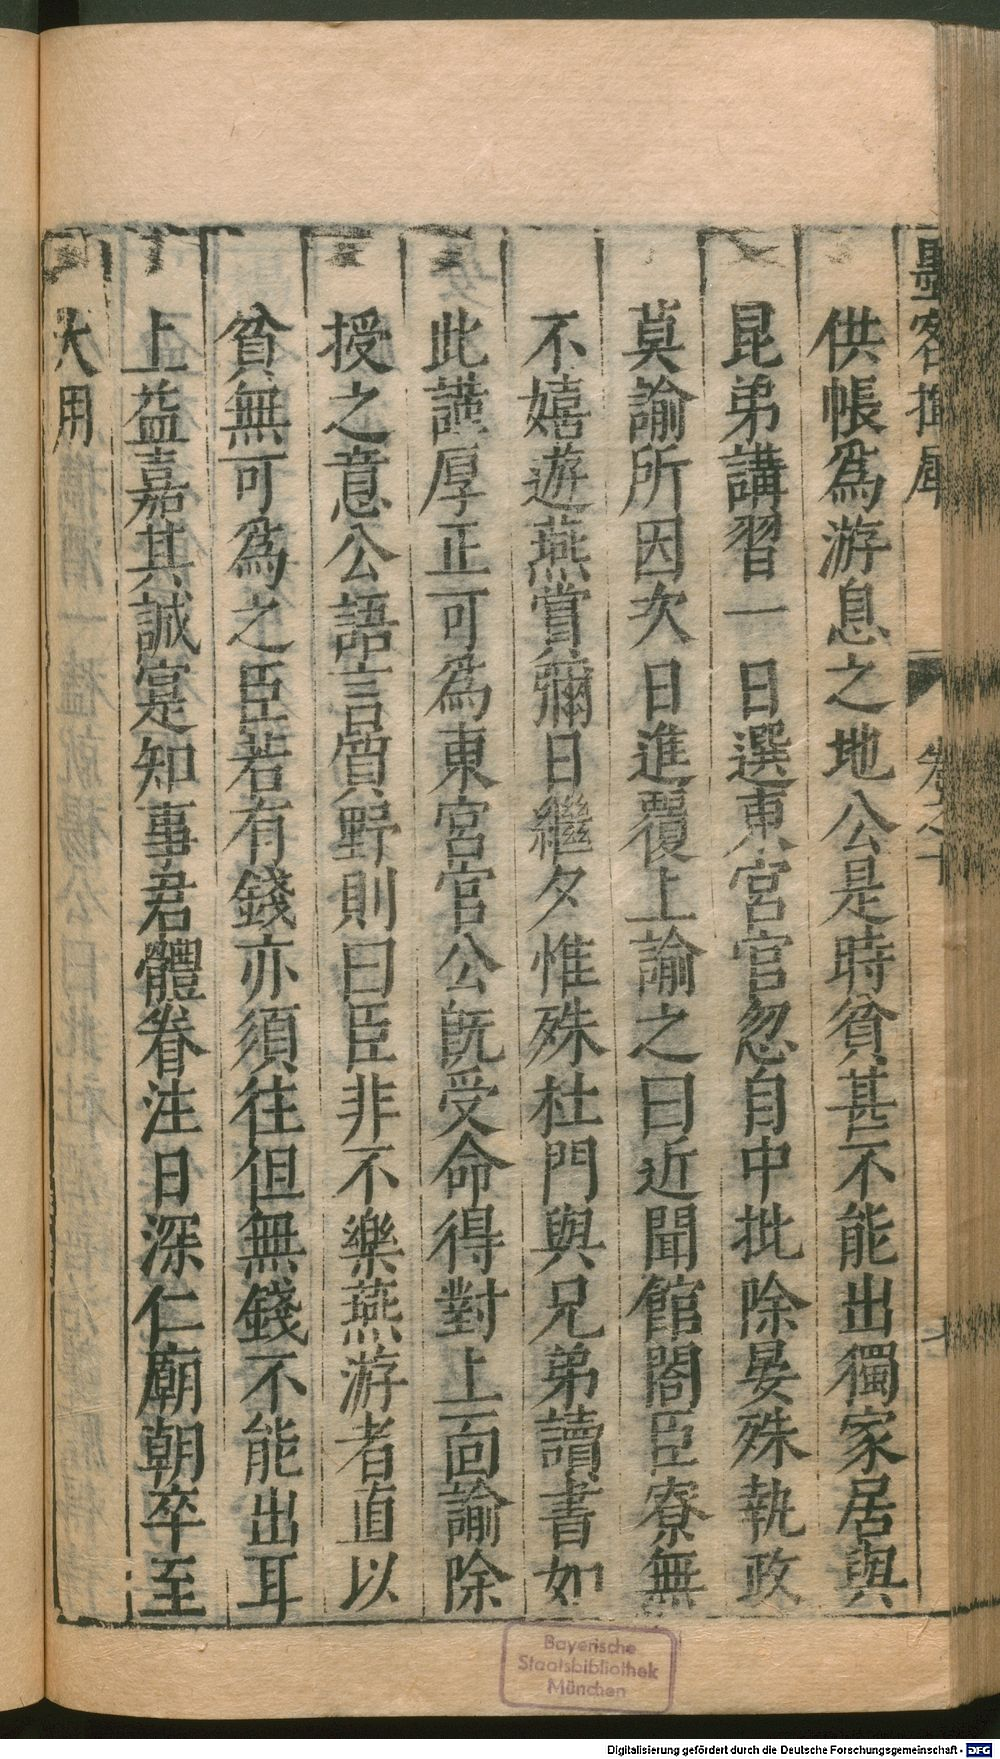 墨客揮犀
卷之十
七
供帳爲游息之地公是時貧甚不能出獨家居與
昆弟講習一日選東宮官忽自中批除晏殊執政
莫諭所因次日進覆上諭之曰近聞館閤臣寮無
不嬉遊燕賞彌日繼夕惟殊杜門與兄弟讀書如
此謹厚正可爲東宮官公旣受命得對上面諭除
授之意公語言質野則曰臣非不樂燕游者直以
貧無可爲之臣若有錢亦須往但無錢不能出耳
上益嘉其誠寔知事君體眷注日深仁廟朝卒至
大用
Bayerische
Staatsbibliothek
München
Digitalisierung gefördert durch die Deutsche Forschungsgemeinschaft - DFG